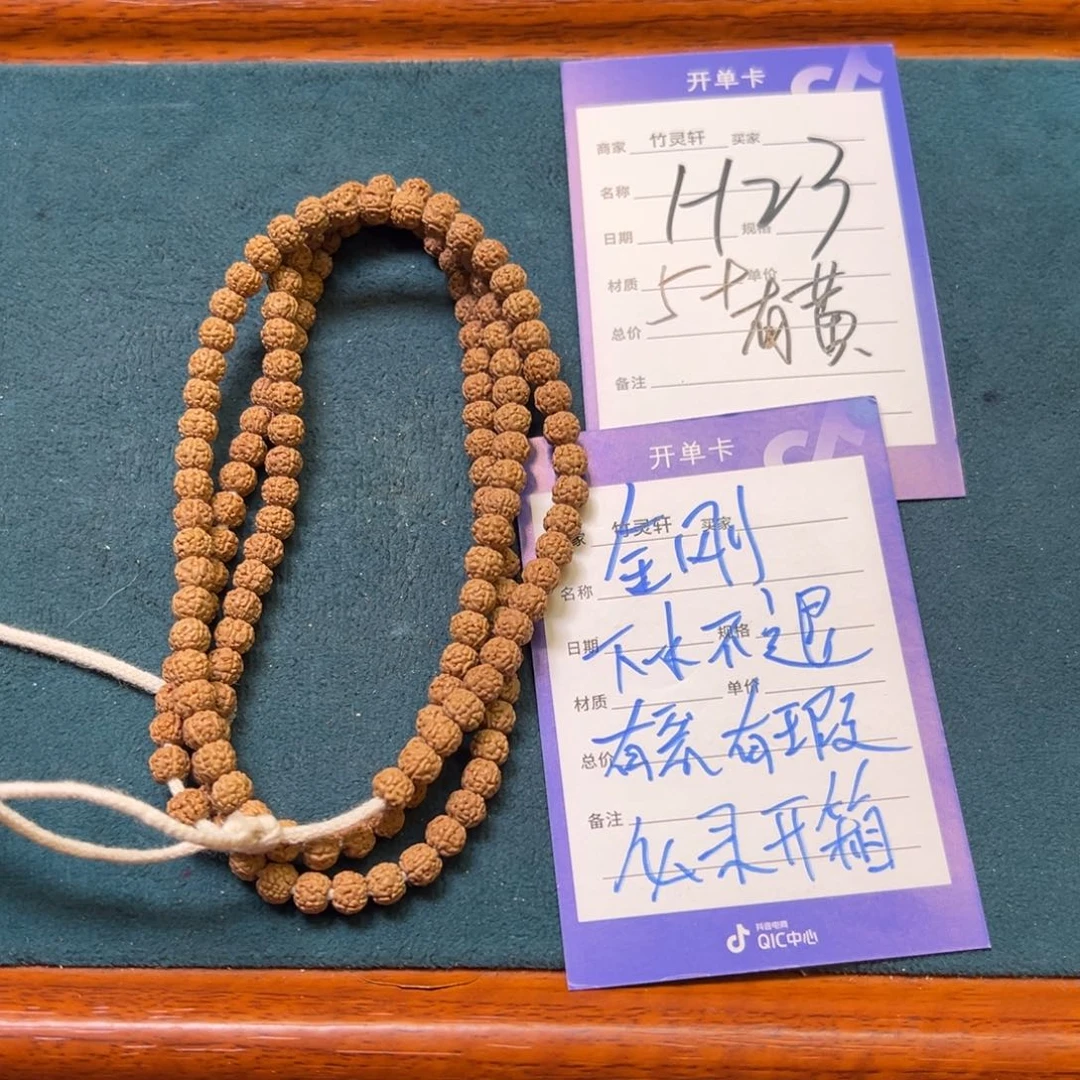 开单卡
商家 竹灵轩 买家
名称
H23
日期 规格
材质 单价
5+有黄
总价
备注
开单卡
家 竹灵轩 买家
金刚
名称
日期 规格
下水不退
材质 单价
总价
有裂有瑕
备注
必录开箱
抖音电商
QIC中心